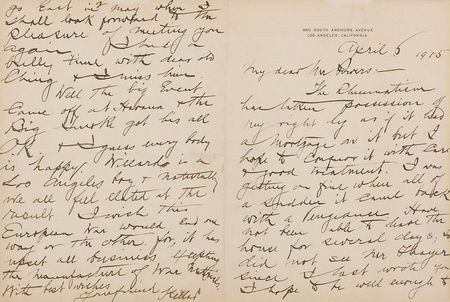 460 SOUTH ARDMORE AVENUE
LOS ANGELES, CALIFORNIA
April 6 1915
My dear Mr Powers:—
The Rheumatism
has taken possession of
my right leg as if it had
a Mortgage on it but I
hope to Conquor it with Care
& good treatment. I was
getting on fine when all of
a Sudden it Came back
with a Vengeance Have
not been able to leave the
house for several days, &
did not see Mr Thayer
since I last wrote you
I hope to be well enough to
go East in May when I
shall look forward to the
pleasure of meeting you
again. I had a
bully time with dear old
& I miss him.
Well the big Event
Came off at Havana & the
Big Smoke got his all
OK & I guess every body
is happy. Willard is a
Los Angeles boy & naturally
we all feel elated at the
result. I wish this
European War would End one
way or the other for it has
upset all business Except
the manufacture of War
With best wishes
Your friend